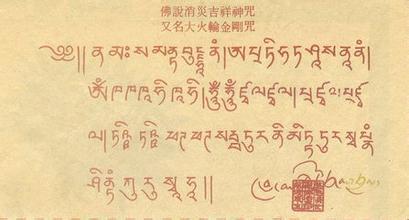 佛說消災吉祥神咒
又名大火輪金剛咒
༄༅།། ན་མཿ ས་མནྟ་བུདྡྷཱ་ནཾ།ཨ་པྲ་ཏི་ཧ་ཏ་ཤཱ་ས་ནཱ་ནཾ།
ཨོཾ་ཁ་ཁ་ཁཱ་ཧི་ཁཱ་ཧི།ཧཱུྃ་ཧཱུྃ་ཛྭ་ལ་ཛྭ་ལ།པྲ་ཛྭ་ལ་པྲ་ཛྭ་
ལ།ཏིཥྛ་ཏིཥྛ་ ཕཊ་ཕཊ་སརྦ་དུར་ནི་མིཏྟ་དུར་སྭ་པྣཾ་
ཤཱནྟིཾ་ཀུ་རུ་སྭཱ་ཧཱ།།